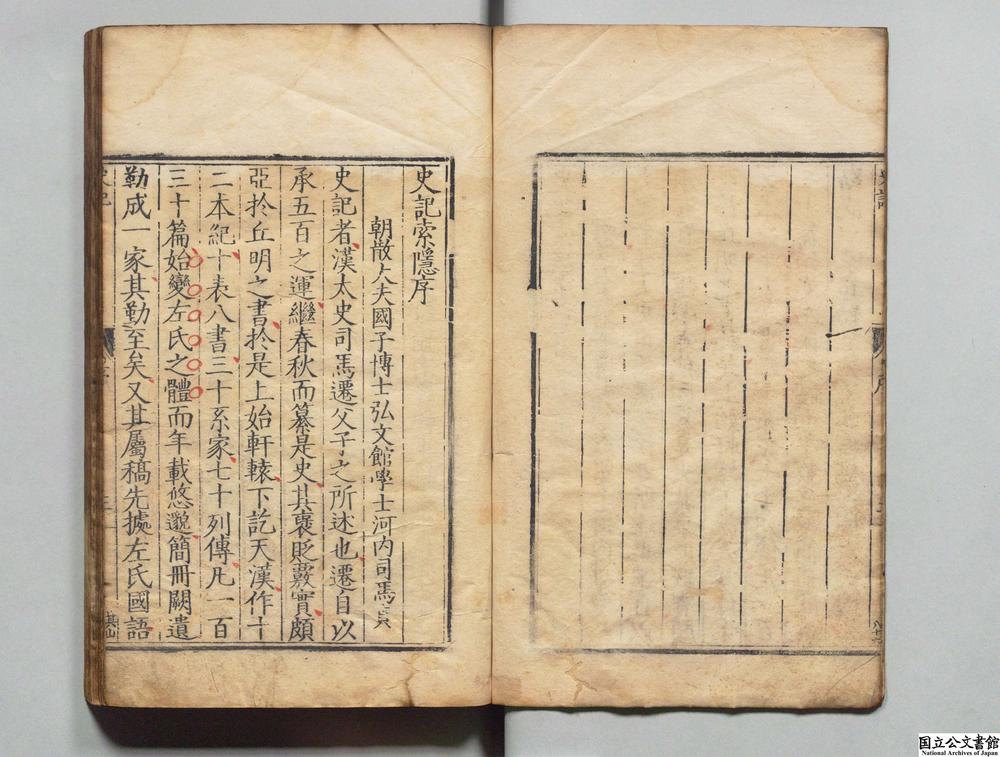 史記索隱序
朝散大夫國子博士弘文館學士河內司馬貞
史記者漢太史司馬遷父子之所述也遷自以
承五百之運繼春秋而纂是史其襃貶覈實頗
亞扵丘明之書扵是上始軒轅下訖天漢作十
二本紀十表八書三十系家七十列傳凡一百
三十篇始變左氏之體而年載悠邈簡冊闕遺
勒成一家其勤至矣又其屬稿先據左氏國語
国立公文書館
National Archives of Japan